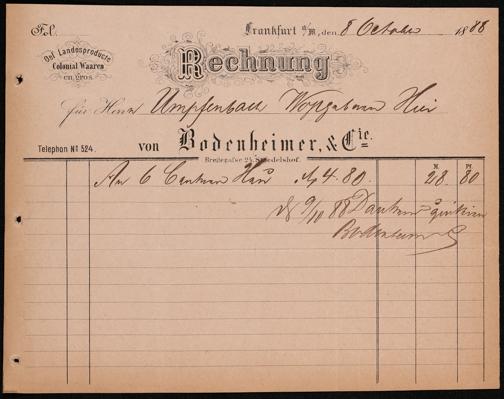 Fol.
Frankfurt a/M, den 8 October 1888
Oel Landesproducte
Colonial Waaren
en gros.
Rechnung
für Herrn Umpfenbach Hier
Telephon No 524.
von Bodenheimer, & Cie.
Breitegasse 24, Staedelshof.
An 6 Centner Heu M 4.80.
M. Pf.
28. 80
9/10 88 Dankend
Bodenheimer